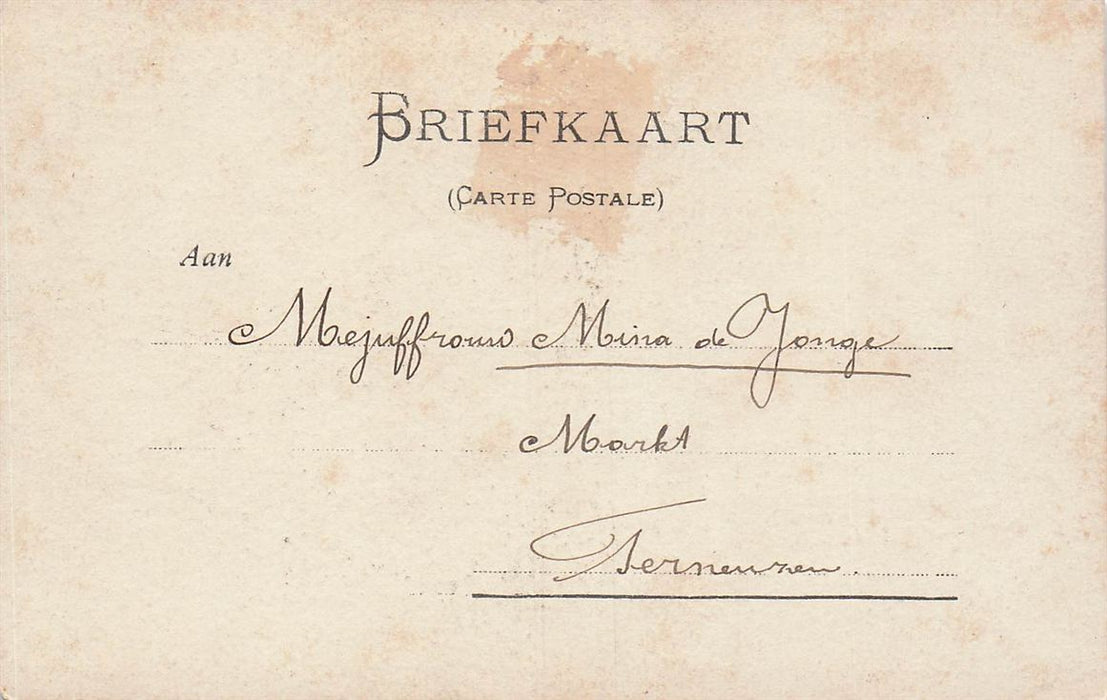 BRIEFKAART
(CARTE POSTALE)
Aan
Mejuffrouw Mina de Jonge
Markt
Terneuzen.